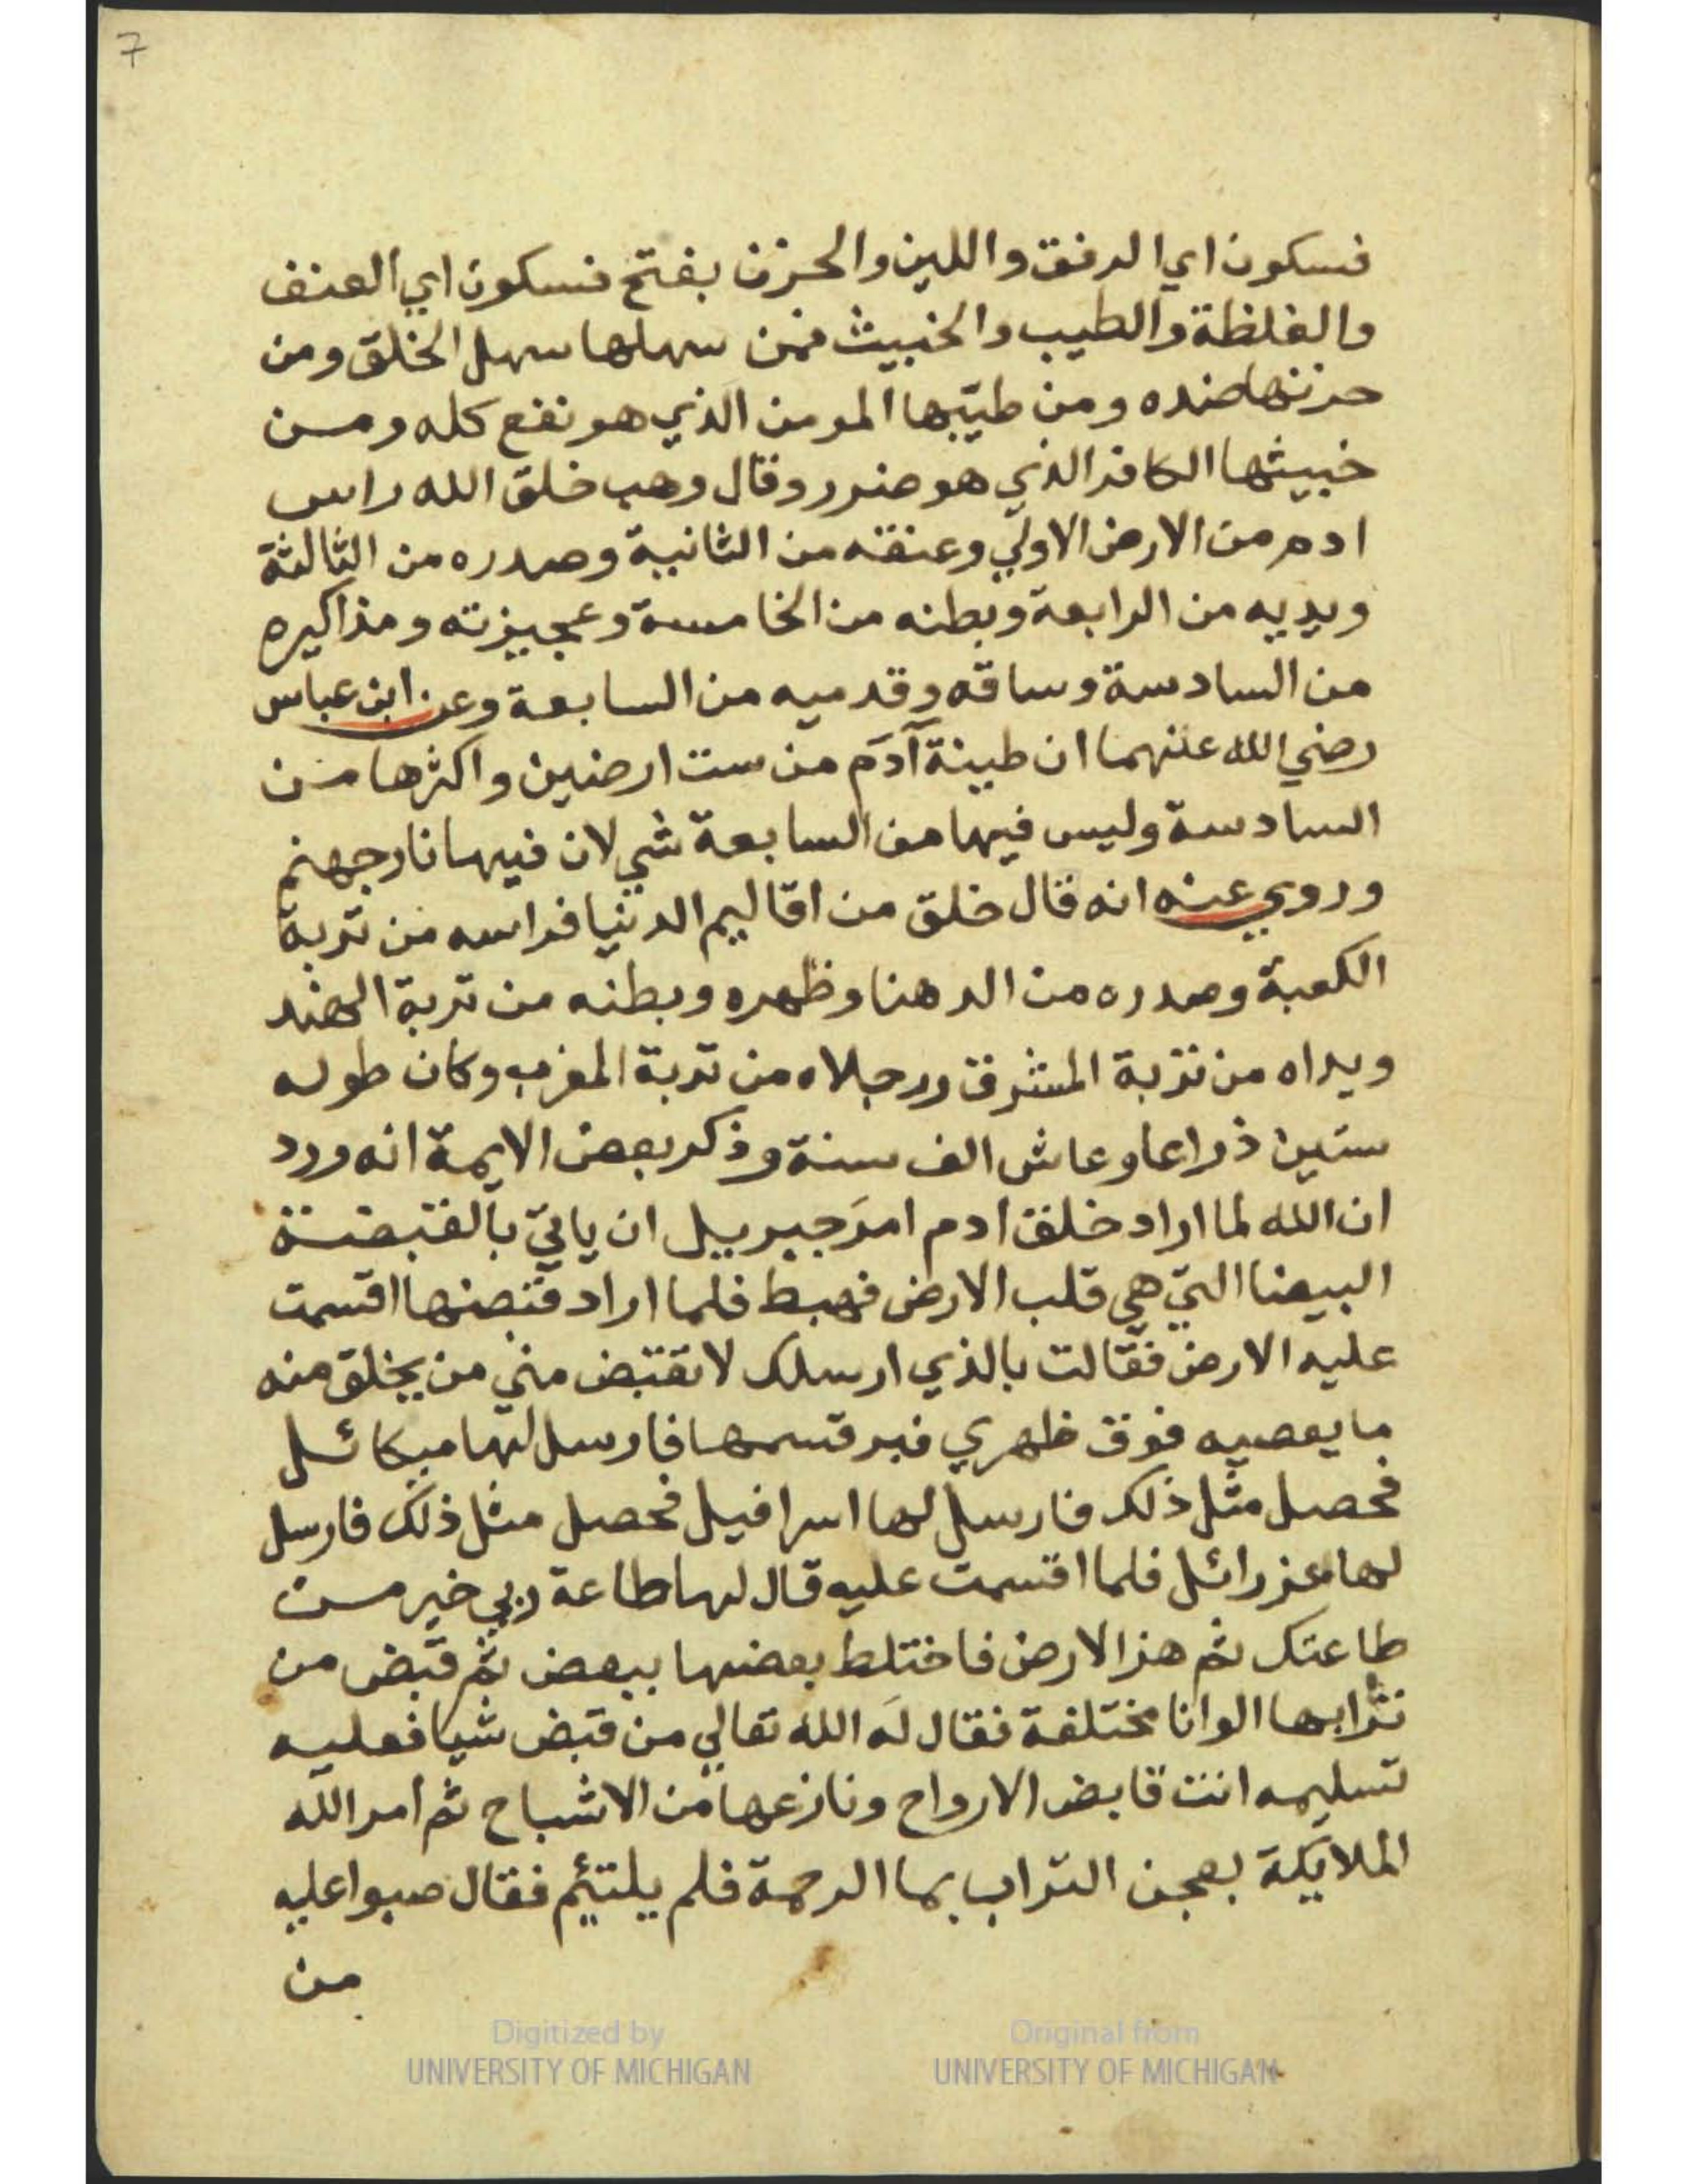 7
فسكون اي الرفق واللين والحزن بفتح فسكون اي العنف
والغلظة والطيب والخبيث فمن سهلها سهل الخلق ومن
حزنها ضده ومن طيّبها المومن الذي هو نفع كله ومن
خبيثها الكافر الذي هو ضرر وقال وهب خلق الله راس
ادم من الارض الاولي وعنقه من الثانية وصدره من الثالثة
ويديه من الرابعة وبطنه من الخامسة وعجيزته ومذاكيره
من السادسة وساقه وقدميه من السابعة وعن ابن عباس
رضي الله عنهما ان طينة آدم من ست ارضين واكثرها من
السادسة وليس فيها من السابعة شي لان فيها نار جهنم
وروي عنه انه قال خلق من اقاليم الدنيا فراسه من تربة
الكعبة وصدره من الدهنا وظهره وبطنه من تربة الهند
ويداه من تربة المشرق ورجلاه من تربة المغرب وكان طوله
ستين ذراعا وعاش الف سنة وذكر بعض الايمة انه ورد
ان الله لما اراد خلق ادم امرَ جبريل ان ياتي بالقبضة
البيضا التي هي قلب الارض فهبط فلما اراد قبضها اقسمت
عليه الارض فقالت بالذي ارسلك لا تقبض مني من يخلق منه
ما يعصيه فوق ظهري فبر قسمها فارسل لها ميكائل
فحصل مثل ذلك فارسل لها اسرافيل فحصل مثل ذلك فارسل
لها عزرائل فلما اقسمت عليه قال لها طاعة ربي خير من
طاعتك ثم هز الارض فاختلط بعضها ببعض ثم قبض من
ترابها الوانا مختلفة فقال لَه الله تعالي من قبض شيا فعليه
تسليمه انت قابض الارواح ونازعها من الاشباح ثم امر الله
الملايكة بعجن التراب بما الرحمة فلم يلتئم فقال صبوا عليه
من
Digitized by
UNIVERSITY OF MICHIGAN
Original from
UNIVERSITY OF MICHIGAN